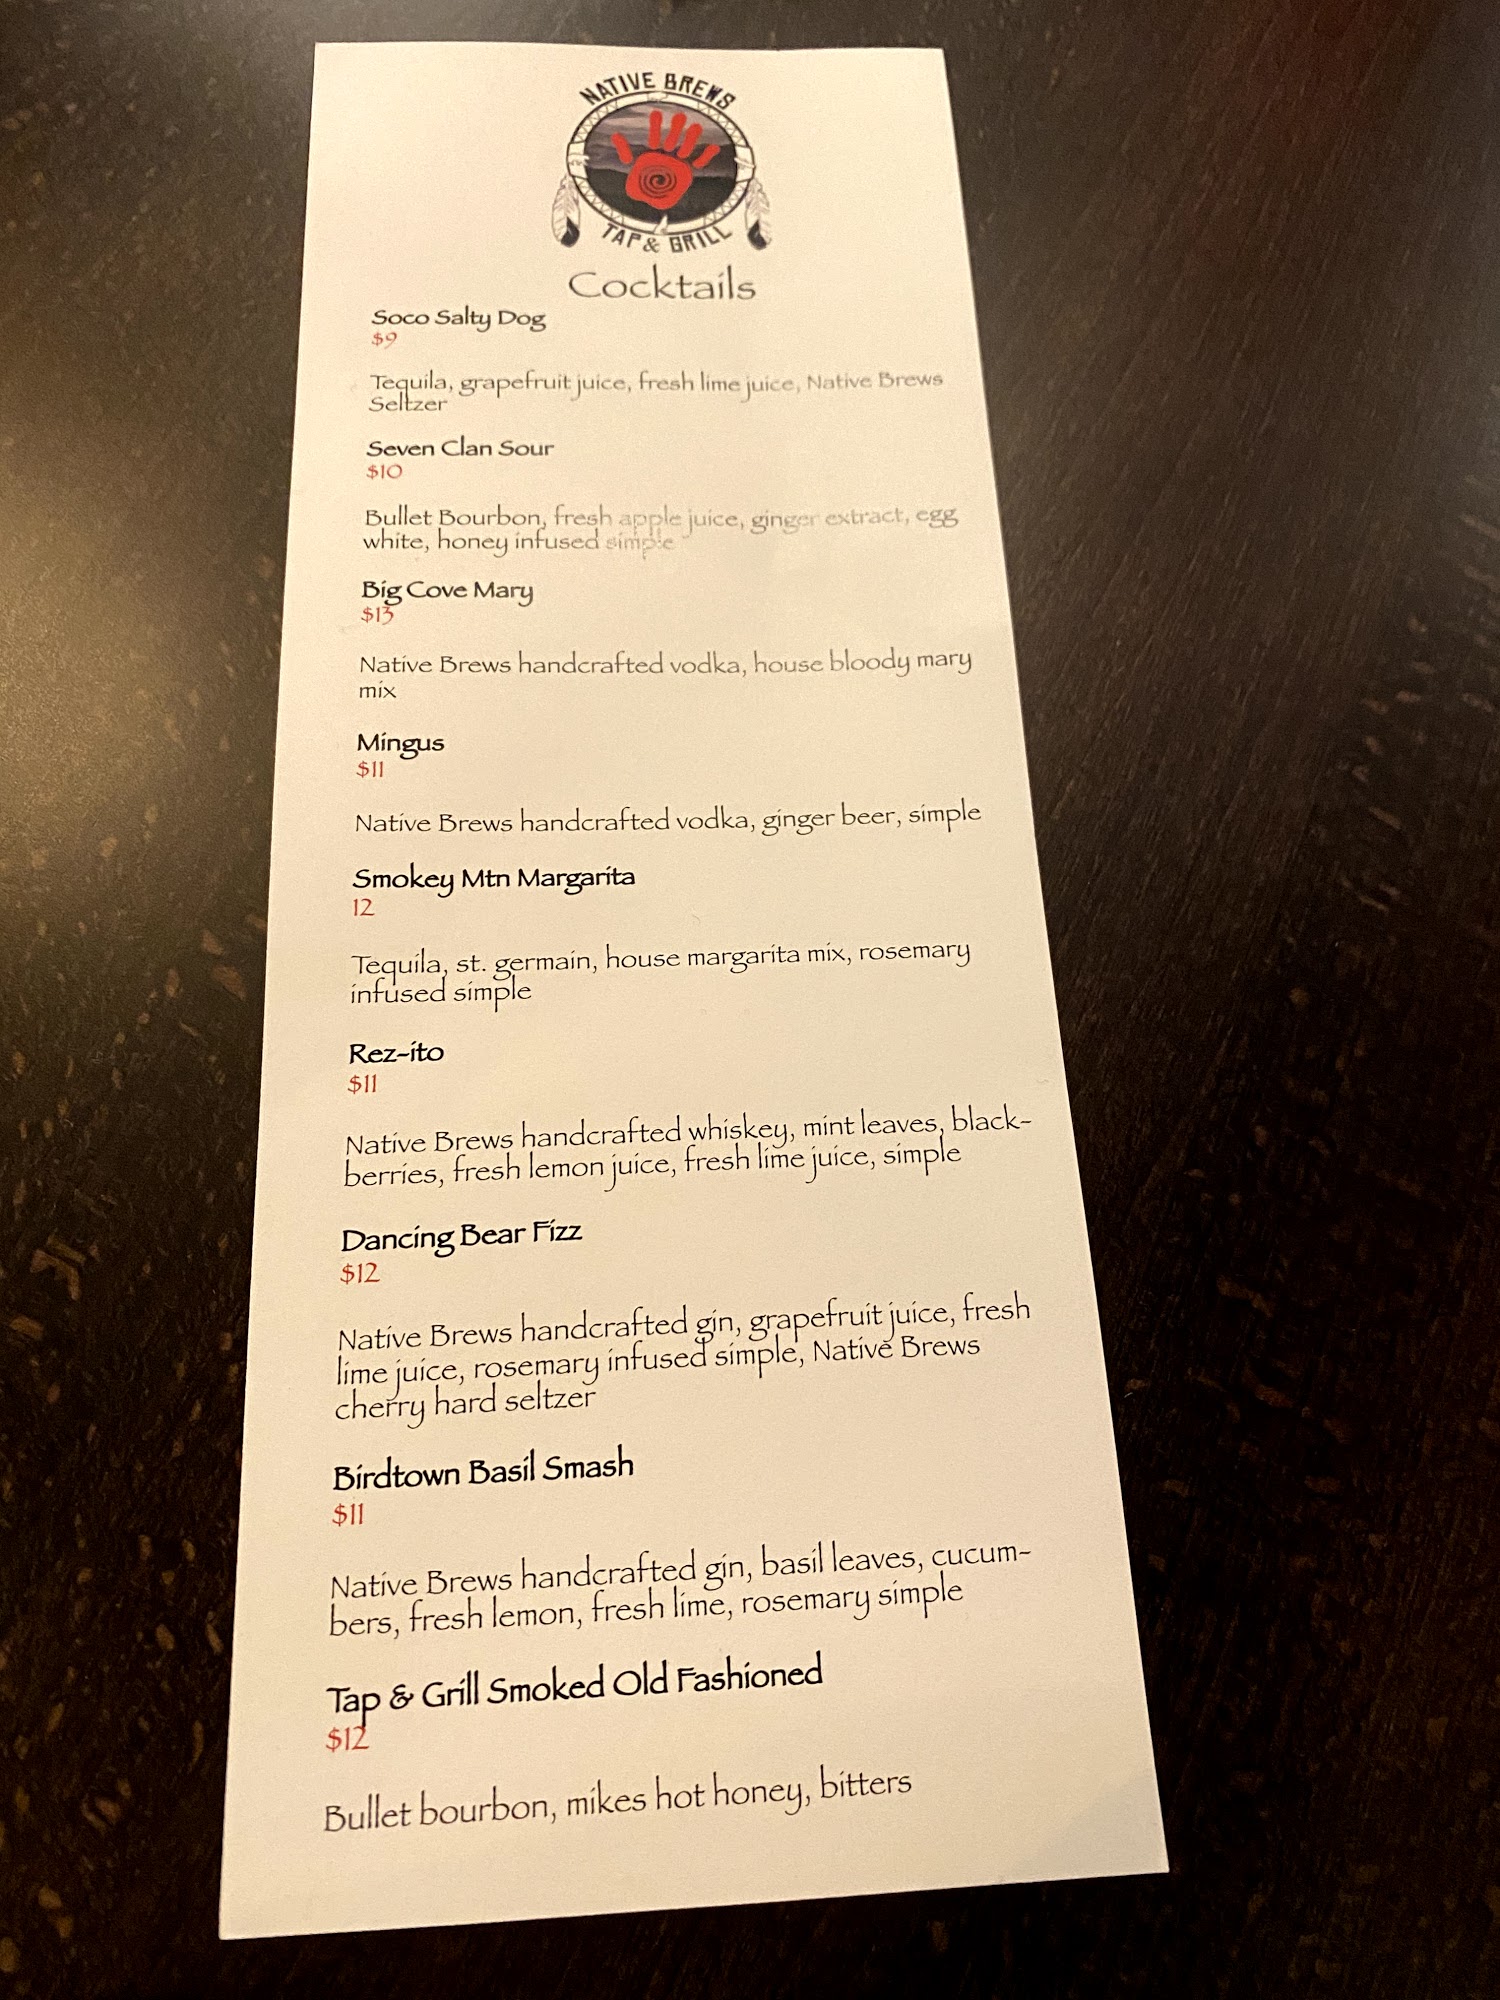 NATIVE BREWS
TAP & GRILL
Cocktails
Soco Salty Dog
$9
Tequila, grapefruit juice, fresh lime juice, Native Brews
Seltzer
Seven Clan Sour
$10
Bullet Bourbon, fresh apple juice, ginger extract, egg
white, honey infused simple
Big Cove Mary
$13
Native Brews handcrafted vodka, house bloody mary
mix
Mingus
$11
Native Brews handcrafted vodka, ginger beer, simple
Smokey Mtn Margarita
12
Tequila, st. germain, house margarita mix, rosemary
infused simple
Rez-ito
$11
Native Brews handcrafted whiskey, mint leaves, black-
berries, fresh lemon juice, fresh lime juice, simple
Dancing Bear Fizz
$12
Native Brews handcrafted gin, grapefruit juice, fresh
lime juice, rosemary infused simple, Native Brews
cherry hard seltzer
Birdtown Basil Smash
$11
Native Brews handcrafted gin, basil leaves, cucum-
bers, fresh lemon, fresh lime, rosemary simple
Tap & Grill Smoked Old Fashioned
$12
Bullet bourbon, mikes hot honey, bitters